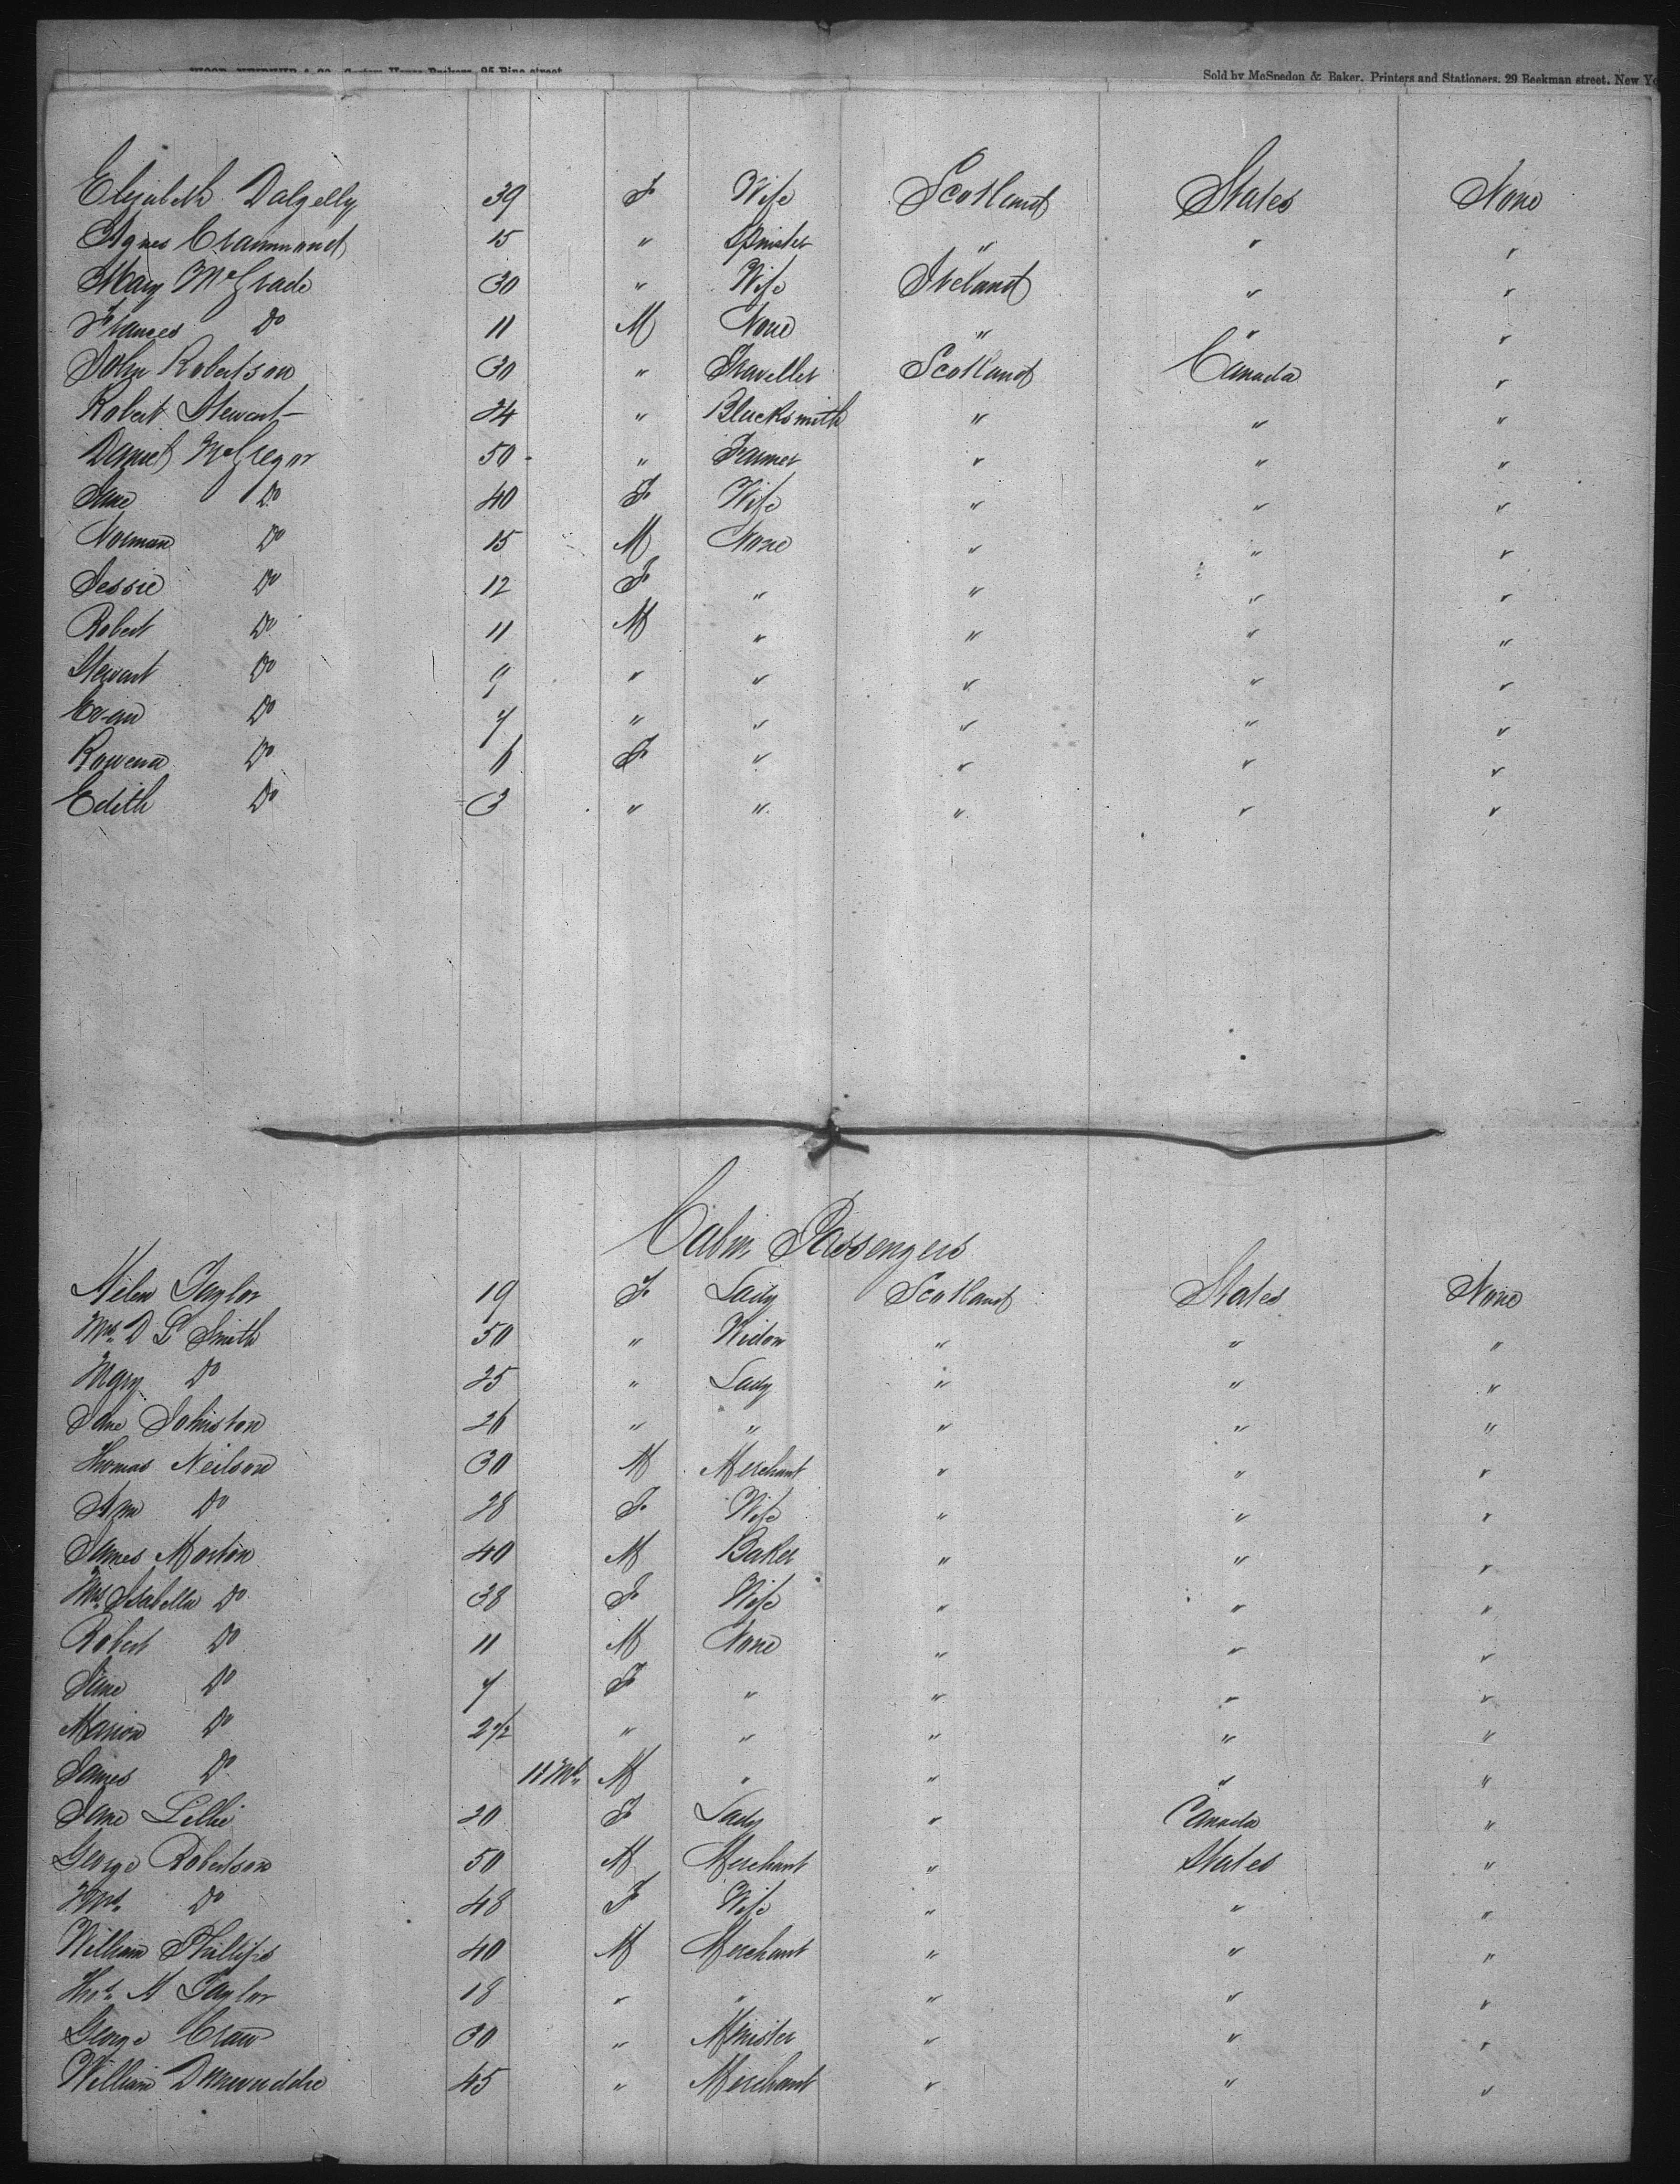 Sold by McSpedon & Baker, Printers and Stationers, 29 Beekman street, New Yo
Elizabeth Dalzelly 39 F Wife Scotland States None
Agnes Crammond 15 " Spinster " " "
Mary McGrade 30 " Wife Ireland " "
Frances Do 11 M None " " "
John Robertson 30 " Traveller Scotland Canada "
Robert Stewart 24 " Blacksmith " " "
Daniel McGregor 50 " Farmer " " "
Jane Do 40 F Wife " " "
Norman Do 15 M None " " "
Jessie Do 12 F " " " "
Robert Do 11 M " " " "
Stewart Do 9 " " " " "
Evan Do 7 " " " " "
Rowena Do 6 F " " " "
Edith Do 3 " " " " "
Cabin Passengers
Helen Taylor 19 F Lady Scotland States None
Mrs. D G Smith 50 " Widow " " "
Mary Do 25 " Lady " " "
Jane Johnston 26 " " " " "
Thomas Neilson 30 M Merchant " " "
Ann Do 28 F Wife " " "
James Morton 40 M Baker " " "
Mrs. Isabella Do 38 F Wife " " "
Robert Do 11 M None " " "
Jane Do 7 F " " " "
Marion Do 2 1/2 " " " " "
James Do 11 Ms. M " " " "
Jane Lillie 20 F Lady " Canada "
George Robertson 50 M Merchant " States "
Mrs. Do 48 F Wife " " "
William Phillips 40 M Merchant " " "
Thos. M Taylor 18 " " " " "
George Craw 30 " Minister " " "
William 45 " Merchant " " "